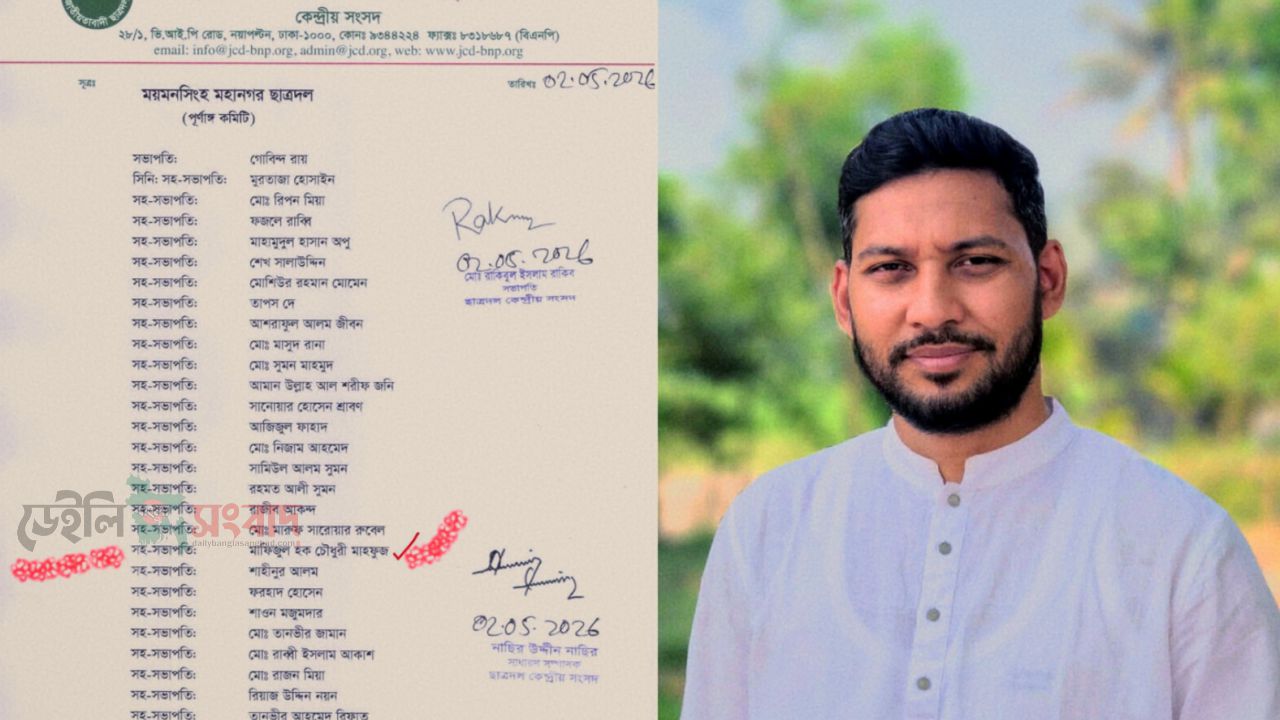 জাতীয়তাবাদী ছাত্রদল
কেন্দ্রীয় সংসদ
২৮/১, ভি.আই.পি রোড, নয়াপল্টন, ঢাকা-১০০০, ফোনঃ ৯৩৪৪২২৪ ফ্যাক্সঃ ৮৩১৮৬৮৭ (বিএনপি)
email: info@jcd-bnp.org, admin@jcd.org, web: www.jcd-bnp.org
সূত্রঃ
তারিখঃ 02.05.2026
ময়মনসিংহ মহানগর ছাত্রদল
(পূর্ণাঙ্গ কমিটি)
সভাপতি: গোবিন্দ রায়
সিনি: সহ-সভাপতি: মুরতাজা হোসাইন
সহ-সভাপতি: মোঃ রিপন মিয়া
সহ-সভাপতি: ফজলে রাব্বি
সহ-সভাপতি: মাহামুদুল হাসান অপু
সহ-সভাপতি: শেখ সালাউদ্দিন
সহ-সভাপতি: মোশিউর রহমান মোমেন
সহ-সভাপতি: তাপস দে
সহ-সভাপতি: আশরাফুল আলম জীবন
সহ-সভাপতি: মোঃ মাসুদ রানা
সহ-সভাপতি: মোঃ সুমন মাহমুদ
সহ-সভাপতি: আমান উল্লাহ আল শরীফ জনি
সহ-সভাপতি: সানোয়ার হোসেন শ্রাবণ
সহ-সভাপতি: আজিজুল ফাহাদ
সহ-সভাপতি: মোঃ নিজাম আহমেদ
সহ-সভাপতি: সামিউল আলম সুমন
সহ-সভাপতি: রহমত আলী সুমন
সহ-সভাপতি: রাজীব আকন্দ
সহ-সভাপতি: মোঃ মারুফ সারোয়ার রুবেল
সহ-সভাপতি: মাফিজুল হক চৌধুরী মাহফুজ
সহ-সভাপতি: শাহীনুর আলম
সহ-সভাপতি: ফরহাদ হোসেন
সহ-সভাপতি: শাওন মজুমদার
সহ-সভাপতি: মোঃ তানভীর জামান
সহ-সভাপতি: মোঃ রাব্বী ইসলাম আকাশ
সহ-সভাপতি: মোঃ রাজন মিয়া
সহ-সভাপতি: রিয়াজ উদ্দিন নয়ন
সহ-সভাপতি: তানভীর আহমেদ রিফাত
02.05.2026
মোঃ রাকিবুল ইসলাম রাকিব
সভাপতি
ছাত্রদল কেন্দ্রীয় সংসদ
02.05.2026
নাছির উদ্দীন নাছির
সাধারণ সম্পাদক
ছাত্রদল কেন্দ্রীয় সংসদ
ডেইলি বাংলা সংবাদ
dailybanglasangbad.com